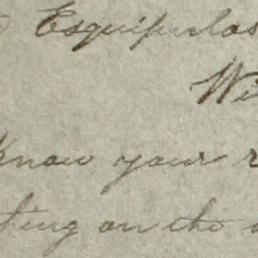 Esquipulas
Wi
know your r
ting on the